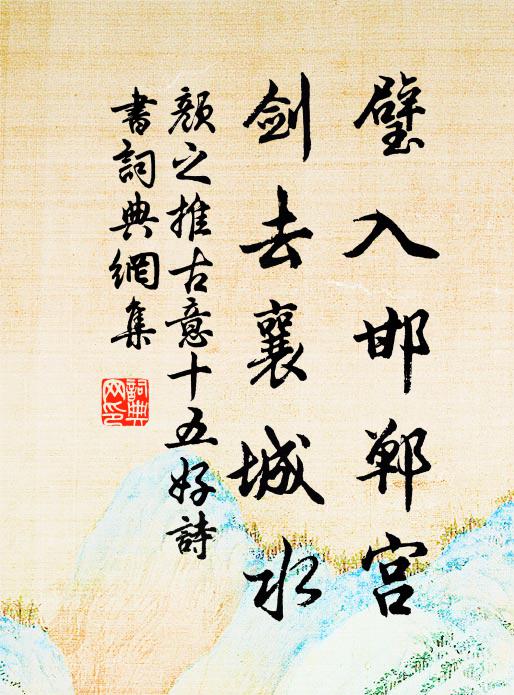 璧入邯郸宫
剑去襄城水
颜之推古意十五好詩
書詞典網集
詞典网印